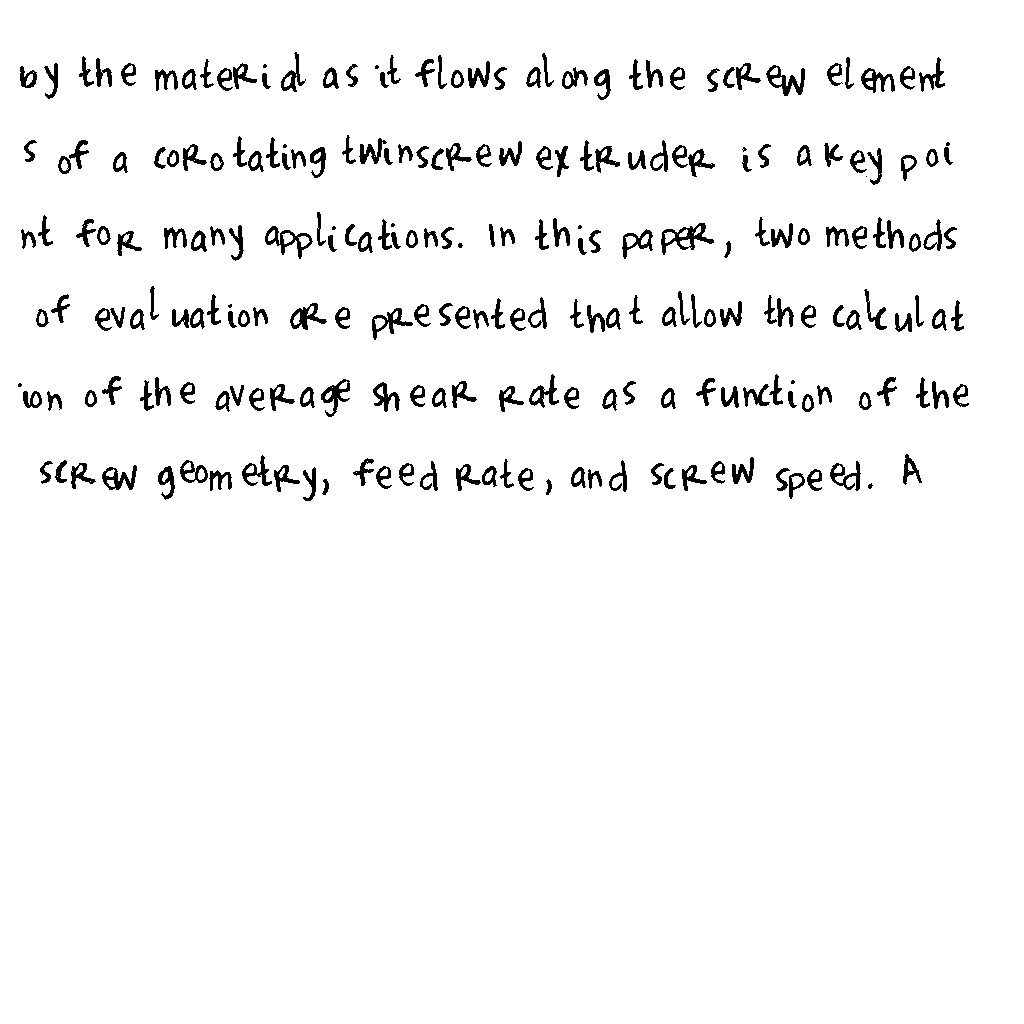 by the material as it flows along the screw element
s of a corotating twinscrew extruder is a key poi
nt for many applications. In this paper, two methods
of evaluation are presented that allow the calculat
ion of the average shear rate as a function of the
screw geometry, feed rate, and screw speed. A